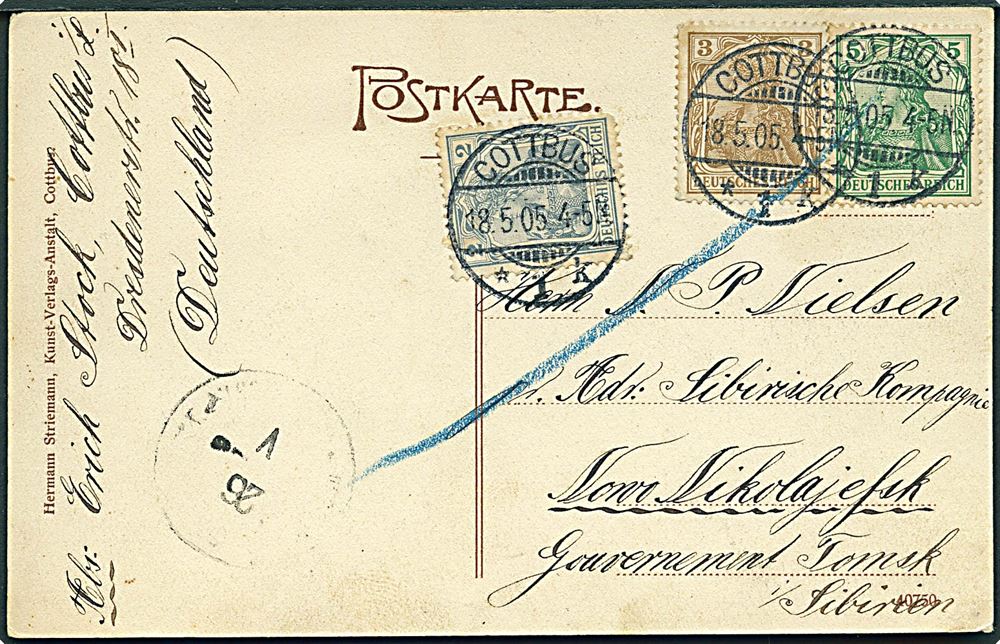 POSTKARTE.
3 3
DEUTSCHES REICH
5 5
DEUTSCHES REICH
2
DEUTSCHES REICH
COTTBUS
18.5.05. 4-5N
* 1 k
COTTBUS
18.5.05. 4-5N
* 1 k
COTTBUS
18.5.05 4-5N
* 1 k
Herrn N. P. Nielsen
Adr: Sibirische Kompagnie
Novo Nikolajefsk
Gouvernement Tomsk
i/Sibirien
40750
Hermann Striemann, Kunst-Verlags-Anstalt, Cottbus.
Abs: Erich Stock, Cottbus
Dresdenerstr. 181
(Deutschland)